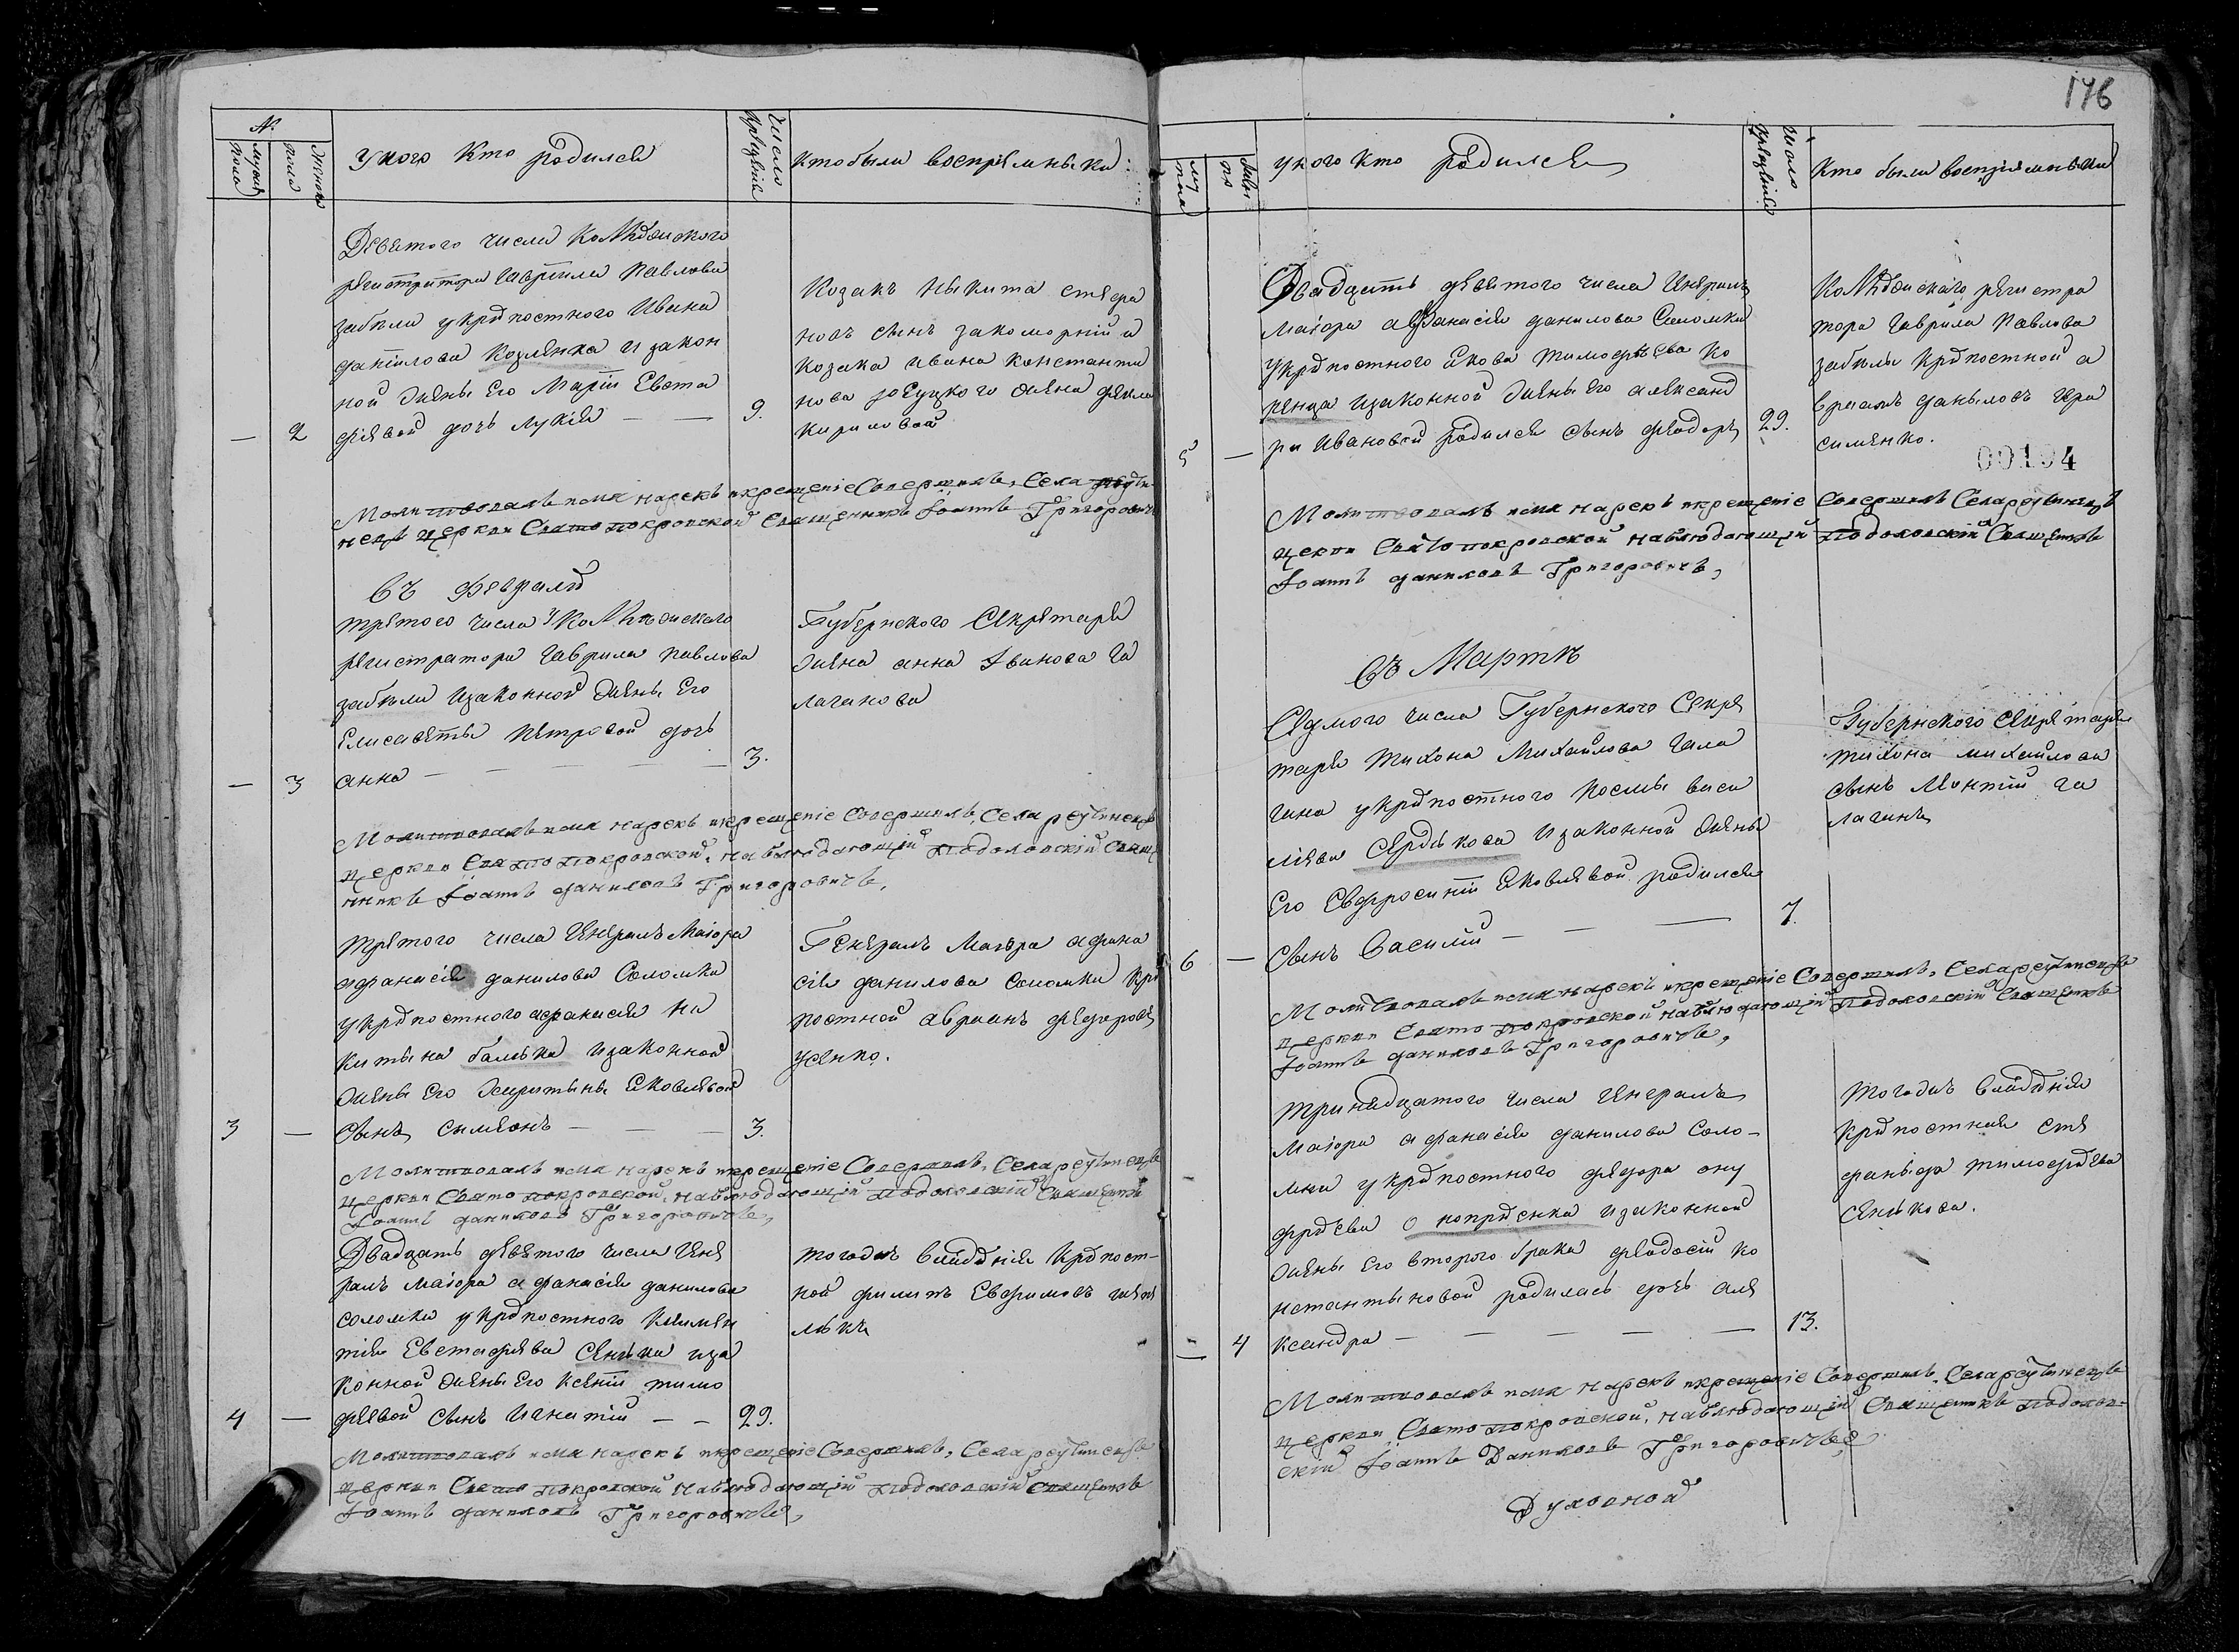 №
мужеска пола
женска пола
У кого кто родился
Число крещенія
кто были воспріемники:
Девятого числа Коллѣжского
регистратора Гаврила Павлова
забѣлы у крѣпостного Ивана
данилова Козленка и закон
ной жены Его Маріи Евста
фіевой дочь Лукія
— 2
9.
Козакъ Никита стефа
новъ сынъ закоморній и
козака ивана константи
нова жена фекла
кириловой
Молитвовалъ имя нарекъ и крещеніе Совершилъ, Села реути
нецъ церкви Свято покровской Священникъ Іоаннъ Григоровичъ
Въ Февралѣ
третого числа у Коллѣжского
регистратора Гаврила павлова
забѣлы и законной жены Его
Елисаветы Петровой дочь
— 3 анна — 3.
Губернского Секретаря
жена анна Іванова га
лаганова
Молитвовалъ имя нарекъ и крещеніе Совершилъ, Села реутинецъ
церкви Свято покровской, наблюдающій подоловскій Свяще
нникъ Іоаннъ даниловъ Григоровичъ,
третого числа Генералъ Маіора
афанасія данилова Соломки
у крѣпостного афанасія ни
китина балыка и законной
жены Его Харитины Яковлевой
3 — сынъ симеонъ — 3.
Генералъ Маіора афана
сія данилова соломки крѣ
постной авраамъ федоровъ
усенко.
Молитвовалъ имя нарекъ и крещеніе Совершилъ, Села реутинецъ
церкви Свято покровской, наблюдающій подоловскій Священникъ
Іоаннъ даниловъ Григоровичъ,
Двадцать девятого числа Гене
ралъ маіора афанасія данилова
соломки у крѣпостного Климен
тія Евстафіева Сенька и за
конной жены Его Ксеніи тимо
4 — феевой сынъ игнатій — 29.
тогожъ владѣнія крѣпост-
ной филипъ Евфимовъ
Молитвовалъ имя нарекъ и крещеніе Совершилъ, Села реутинецъ
церкви Свято покровской наблюдающій подоловскій священникъ
Іоаннъ даниловъ Григоровичъ,
176
у кого кто родился
Число крещенія
Кто были воспріемники
Двадцать девятого числа Генералъ
маіора афанасія данилова Соломки
у крѣпостного Якова тимофѣева ко
ренца и законной жены Его александ
5 — ры Ивановой родился сынъ феодоръ 29.
Коллѣжскаго регистра
тора Гаврила Павлова
забѣлы крѣпостной а
врамъ даныловъ гера
сименко.
00194
Молитвовалъ имя нарекъ и крещеніе Совершилъ Села реутинецъ
церкви Свято покровской наблюдающій подоловскій Священникъ
Іоаннъ даниловъ Григоровичъ,
Въ Мартѣ
Седмого числа Губернского Секре
таря Тихона Михайлова Гала
гана у крѣпостного Космы васи
ліева Сердюкова и законной жены
Его Евфросиніи Яковлевой родился
6 — сынъ Василій — 7.
Губернского Секретаря
тихона михайлова
сынъ Леонтій га
лаганъ
Молитвовалъ имя нарекъ и крещеніе Совершилъ, Села реутинецъ
церкви Свято покровской наблюдающій подоловскій Священникъ
Іоаннъ даниловъ Григоровичъ,
Тринадцатого числа Генералъ
маіора афанасія данилова Соло-
мки у крѣпостного федора ону
фрѣева Онопрѣенка и законной
жены Его второго брака феодосіи ко
нстантыновой родилась дочь але
— 4 ксандра — 13.
тогожъ владѣнія
крѣпостная сте
фаныда тимофѣева
сенькова.
Молитвовалъ имя нарекъ и крещеніе Совершилъ, Села реутинецъ
церкви Свято покровской, наблюдающій Священникъ подолов-
скій Іоаннъ Даниловъ Григоровичъ
Духовной